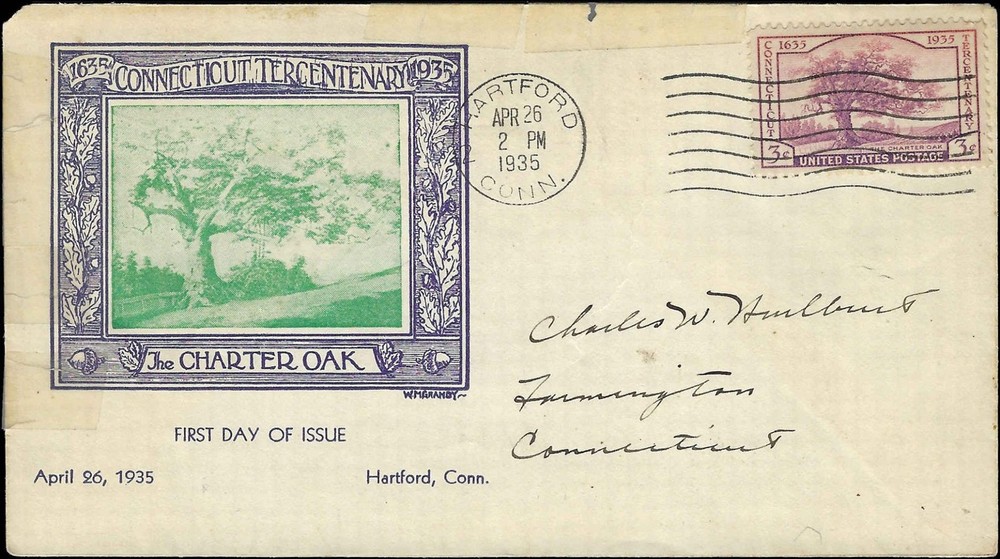 1635 CONNECTICUT TERCENTENARY 1935
The CHARTER OAK
W.M.GRANDY
FIRST DAY OF ISSUE
April 26, 1935 Hartford, Conn.
HARTFORD
APR 26
2 PM
1935
CONN.
1635 1935
CONNECTICUT TERCENTENARY
THE CHARTER OAK
3c UNITED STATES POSTAGE 3c
Charles W. Hurlburt
Farmington
Connecticut